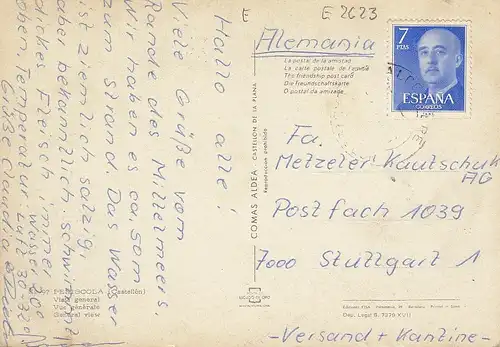 E
E 2623
Alemania
7
PTAS
ESPAÑA
CORREOS
La postal de la amistad
La carte postale de l'amitié
The friendship post card
Die Freundschaftskarte
O postal da amizade
Hallo alle!
Viele Grüße vom
Rande des Mittelmeers.
Wir haben es ca. 50m
zum Strand. Das Wasser
ist zwar sehr salzig,
aber bekanntlich schwimmt
dickes Fleisch immer
oben. Temperatur Luft 30-
Wasser 20°
Grüße Claudia
COMAS ALDEA - CASTELLÓN DE LA PLANA
Reproducción prohibida
Fa.
Metzeler Kautschuk
AG
Postfach 1039
7000 Stuttgart 1
-Versand + Kantine-
PEÑISCOLA (Castellón)
Vista general
Vue générale
General view
Dep. Legal B. 7276-XVII